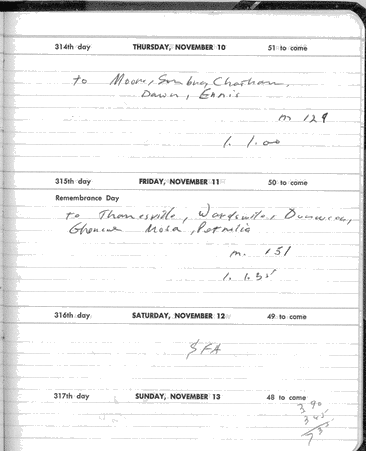 314th day THURSDAY, NOVEMBER 10 51 to come
to Moore, Sombra, Chatham,
Dawn, Ennis
m 129
l. 1.00
315th day FRIDAY, NOVEMBER 11 50 to come
Remembrance Day
to Thamesville, Wardsville, Dunwich,
Glencoe Mosa, Petrolia
m. 151
l. 1.35
316th day SATURDAY, NOVEMBER 12 49 to come
SFA
317th day SUNDAY, NOVEMBER 13 48 to come
390
345
735